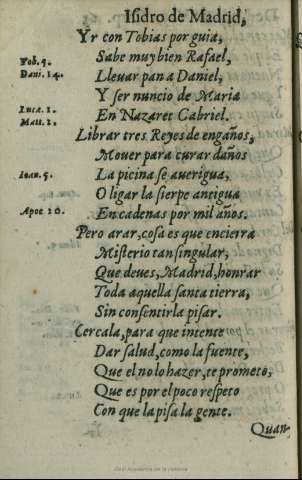 Isidro de Madrid,
Yr con Tobias por guia,
Tob. 5.
Sabe muy bien Rafael,
Dani. 14.
Lleuar pan a Daniel,
Y ser nuncio de Maria
Luca. 1.
En Nazaret Gabriel.
Matt. 2.
Librar tres Reyes de engaños,
Mouer para curar daños
Ioan. 5.
La picina se auerigua,
O ligar la sierpe antigua
Apoc 20.
En cadenas por mil años.
Pero arar, cosa es que encierra
Misterio tan singular,
Que deues, Madrid, honrar
Toda aquella santa tierra,
Sin consentirla pisar.
Cercala, para que intente
Dar salud, como la fuente,
Que el no lo hazer, te prometo,
Que es por el poco respeto
Con que la pisa la gente.
Quan,
Real Academia de la Historia